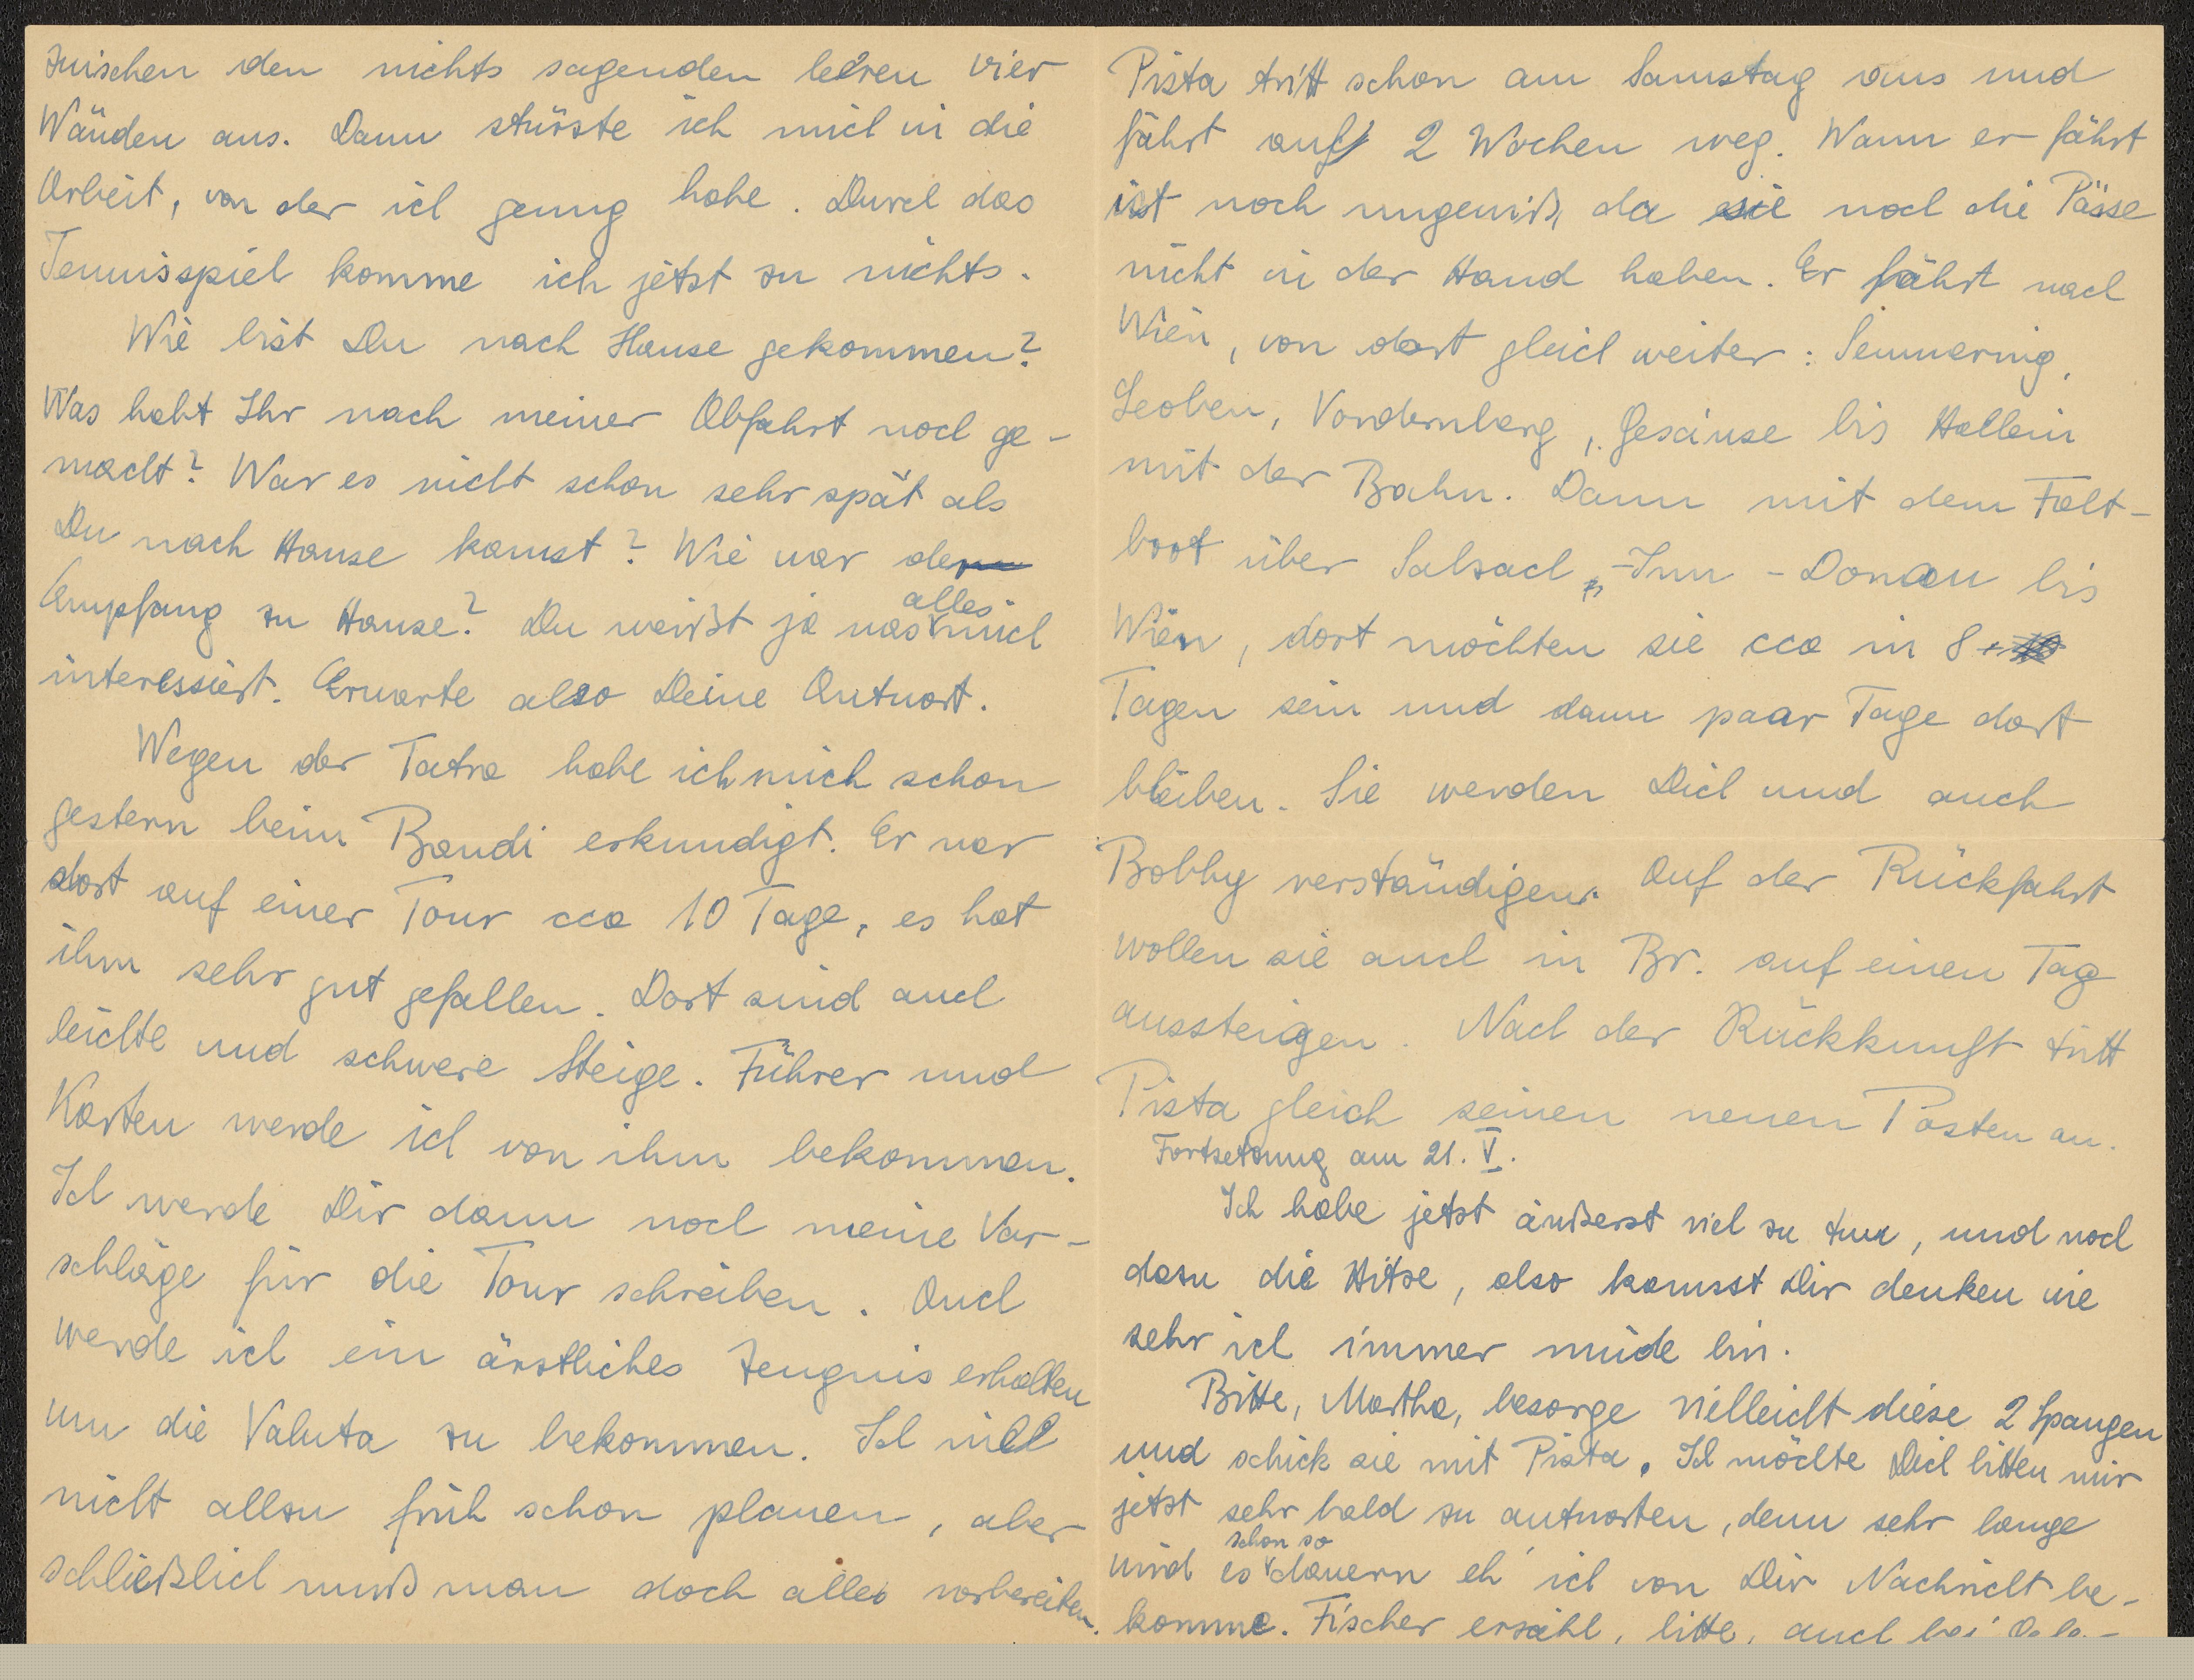 zwischen den nichts sagenden leeren vier
Wänden aus. Dann stürzte ich mich in die
Arbeit, von der ich genug habe. Durch das
Tennisspiel komme ich jetzt zu nichts.
Wie bist Du nach Hause gekommen?
Was habt Ihr nach meiner Abfahrt noch ge-
macht? War es nicht schon sehr spät als
Du nach Hause kamst? Wie war der
Empfang zu Hause? Du weißt ja was alles mich
interessiert. Erwarte also Deine Antwort.
Wegen der Tatra habe ich mich schon
gestern beim Bandi erkundigt. Er war
dort auf einer Tour cca 10 Tage, es hat
ihm sehr gut gefallen. Dort sind auch
leichte und schwere Steige. Führer und
Karten werde ich von ihm bekommen.
Ich werde Dir dann noch meine Vor-
schläge für die Tour schreiben. Auch
werde ich ein ärztliches Zeugnis erhalten
um die Valuta zu bekommen. Ich will
nicht allzu früh schon planen, aber
schließlich muß man doch alles vorbereiten.
Pista tritt schon am Samstag aus und
fährt auf 2 Wochen weg. Wann er fährt
ist noch ungewiß, da sie noch die Pässe
nicht in der Hand haben. Er fährt nach
Wien, von dort gleich weiter: Semmering,
Leoben, Vordernberg, Gesäuse bis Hallein
mit der Bahn. Dann mit dem Falt-
boot über Salzach-Inn-Donau bis
Wien, dort möchten sie cca in 8
Tagen sein und dann paar Tage dort
bleiben. Sie werden Dich und auch
Bobby verständigen. Auf der Rückfahrt
wollen sie auch in Br. auf einen Tag
aussteigen. Nach der Rückkunft tritt
Pista gleich seinen neuen Posten an.
Fortsetzung am 21. V.
Ich habe jetzt äußerst viel zu tun, und noch
dazu die Hitze, also kannst Dir denken wie
sehr ich immer müde bin.
Bitte, Martha, besorge vielleicht diese 2 Spangen
und schick sie mit Pista. Ich möchte Dich bitten mir
jetzt sehr bald zu antworten, denn sehr lange
wird es schon so dauern eh' ich von Dir Nachricht be-
komme. Fischer erzähl, bitte, auch bei